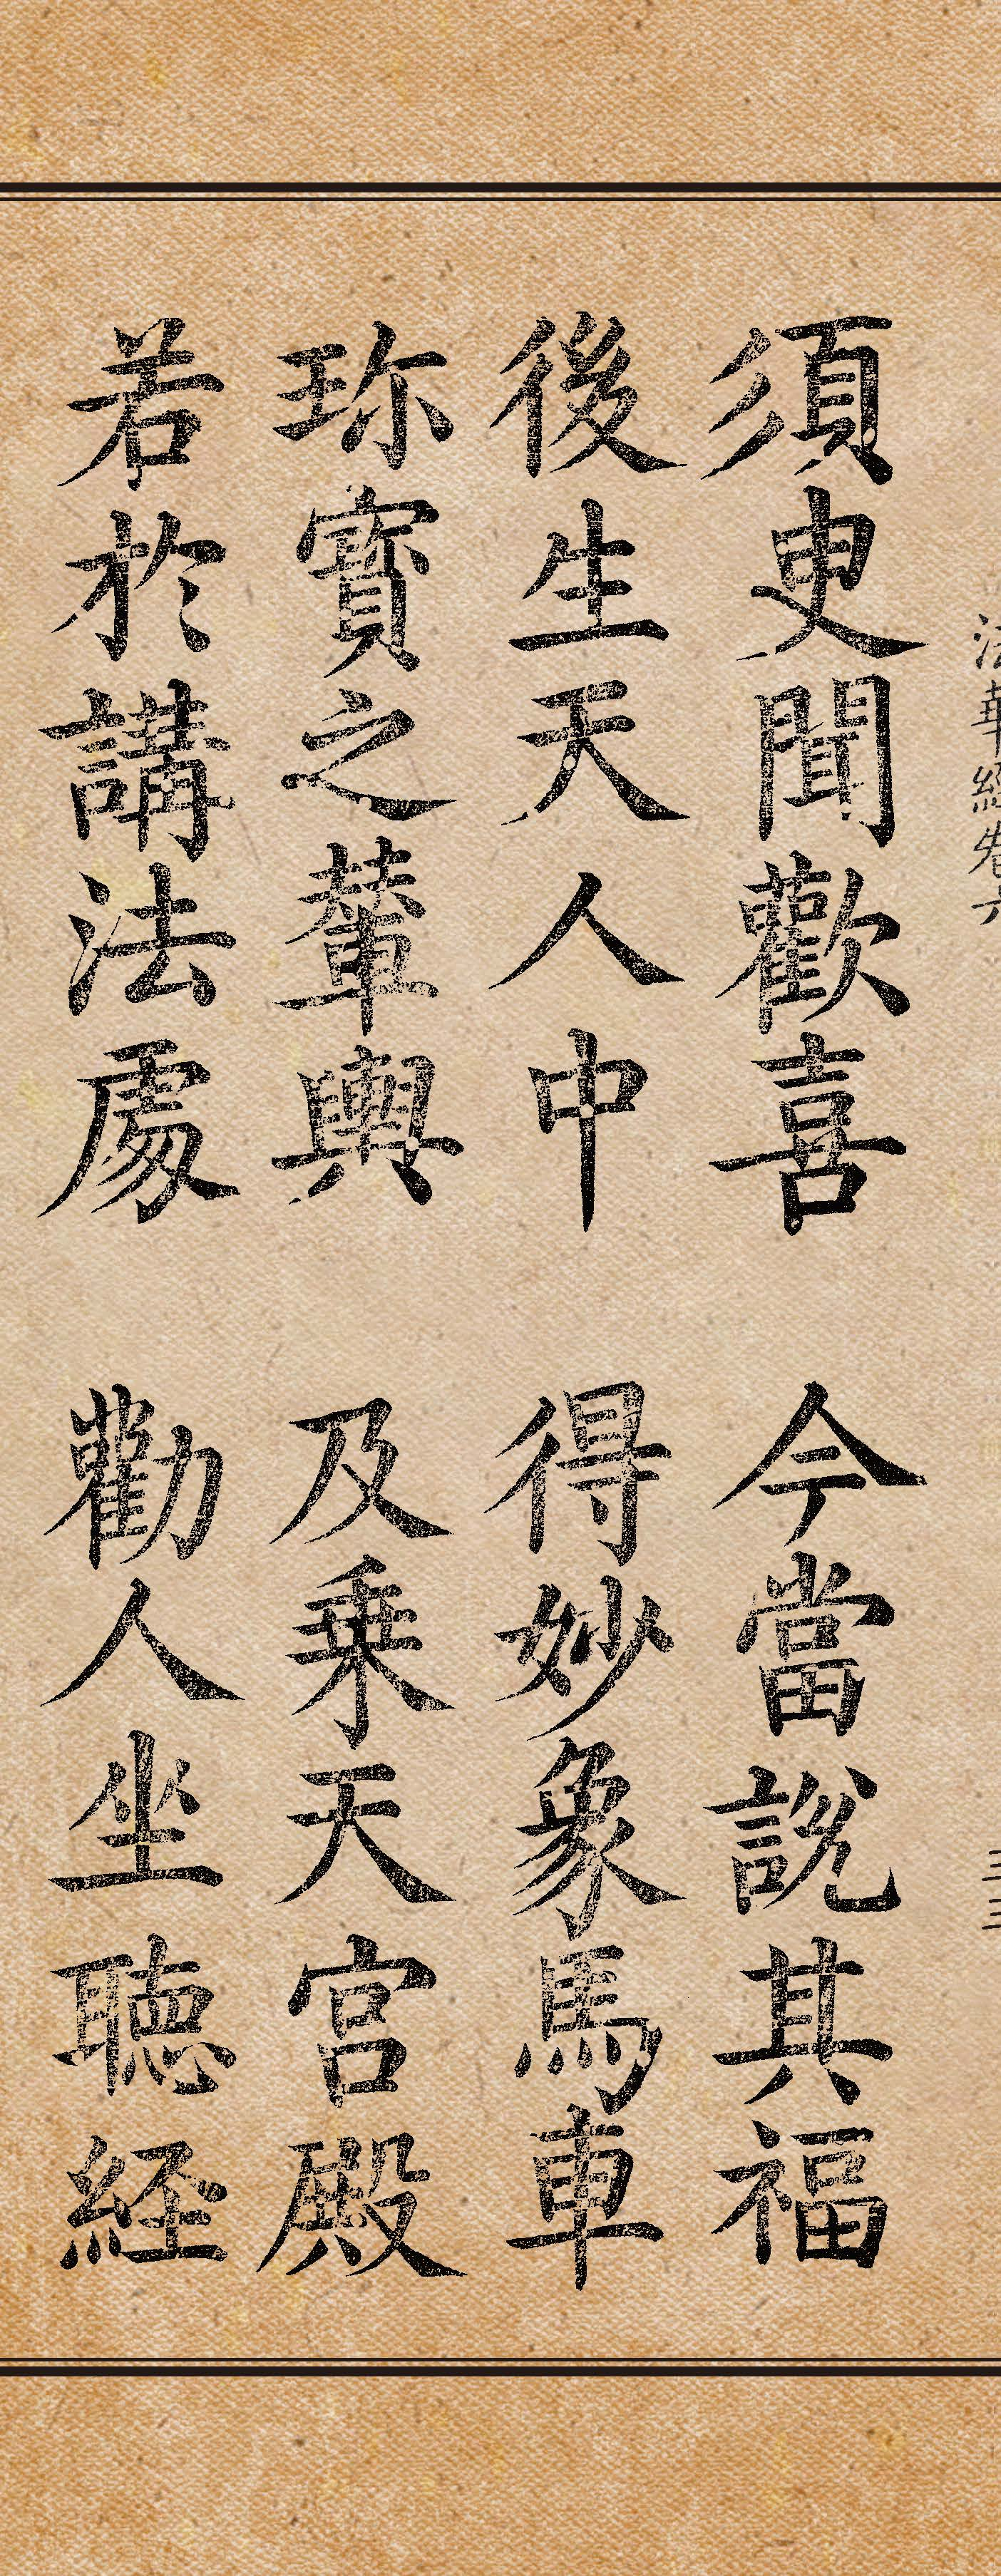 法華經卷六 三三
須臾聞歡喜 今當說其福
後生天人中 得妙象馬車
珍寶之輦輿 及乗天宮殿
若於講法處 勸人坐聽経